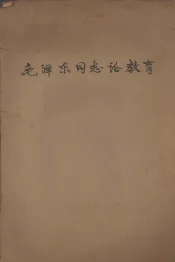 毛泽东同志论教育